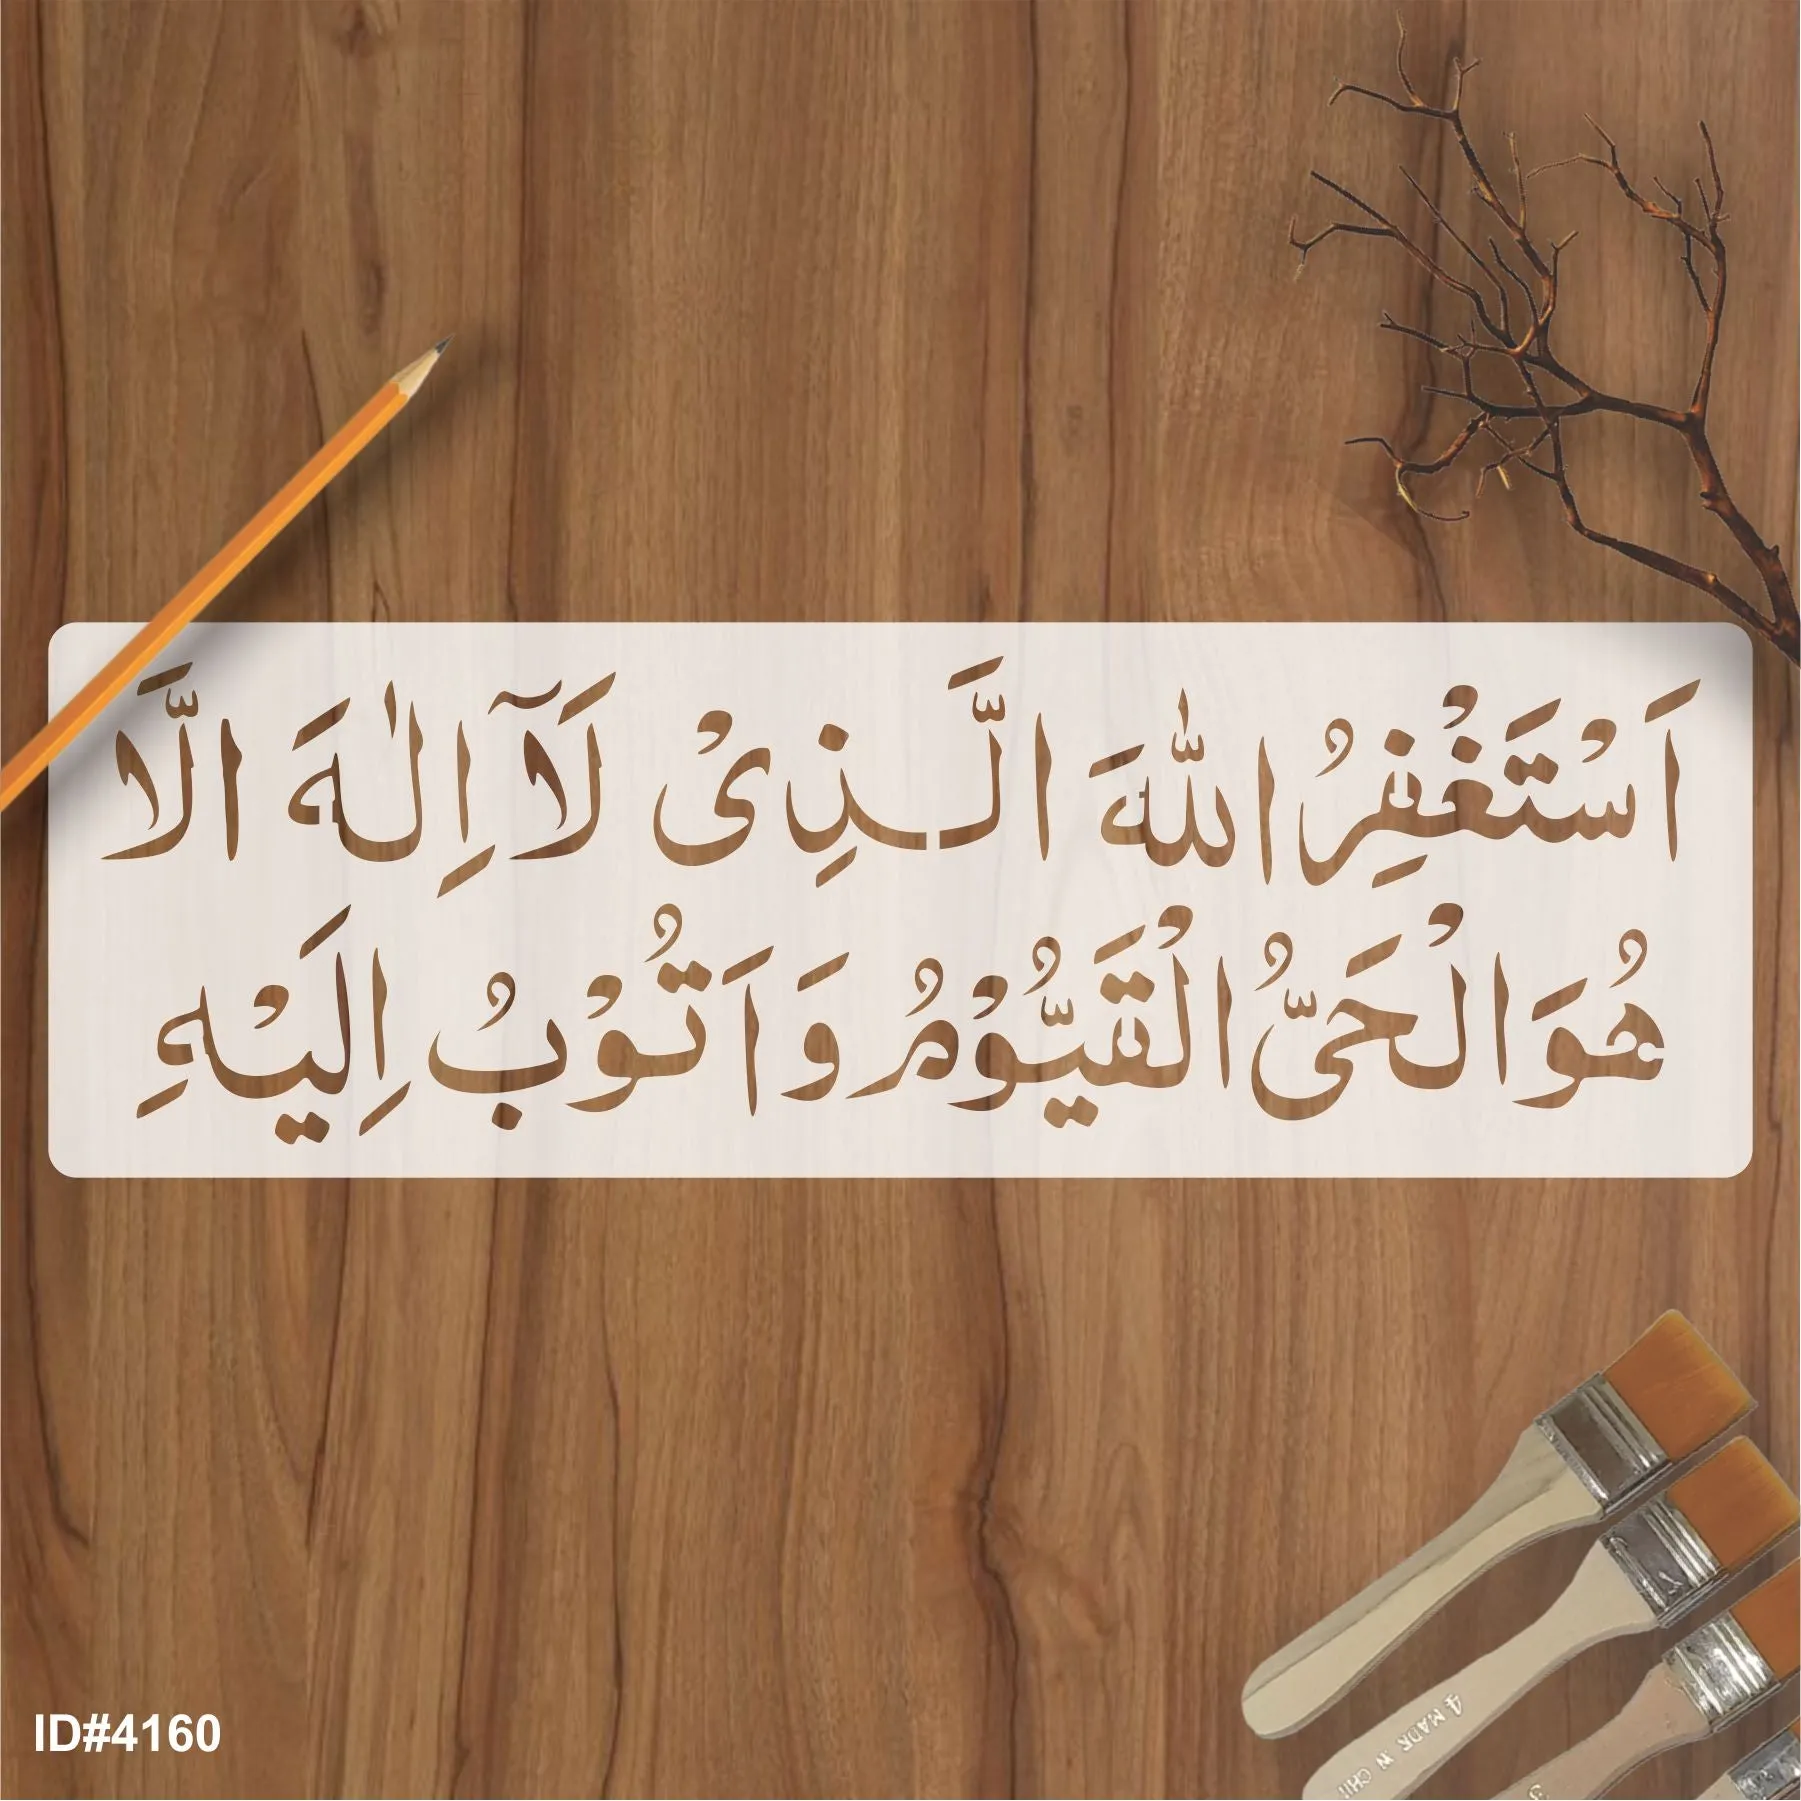 اَسْتَغْفِرُ اللهَ الَّـذِىْ لَآ اِلٰهَ الَّا
هُوَ الْحَىُّ الْقَيُّوْمُ وَ اَتُوْبُ اِلَيْهِ
ID#4160
4 MADE IN CHI
3